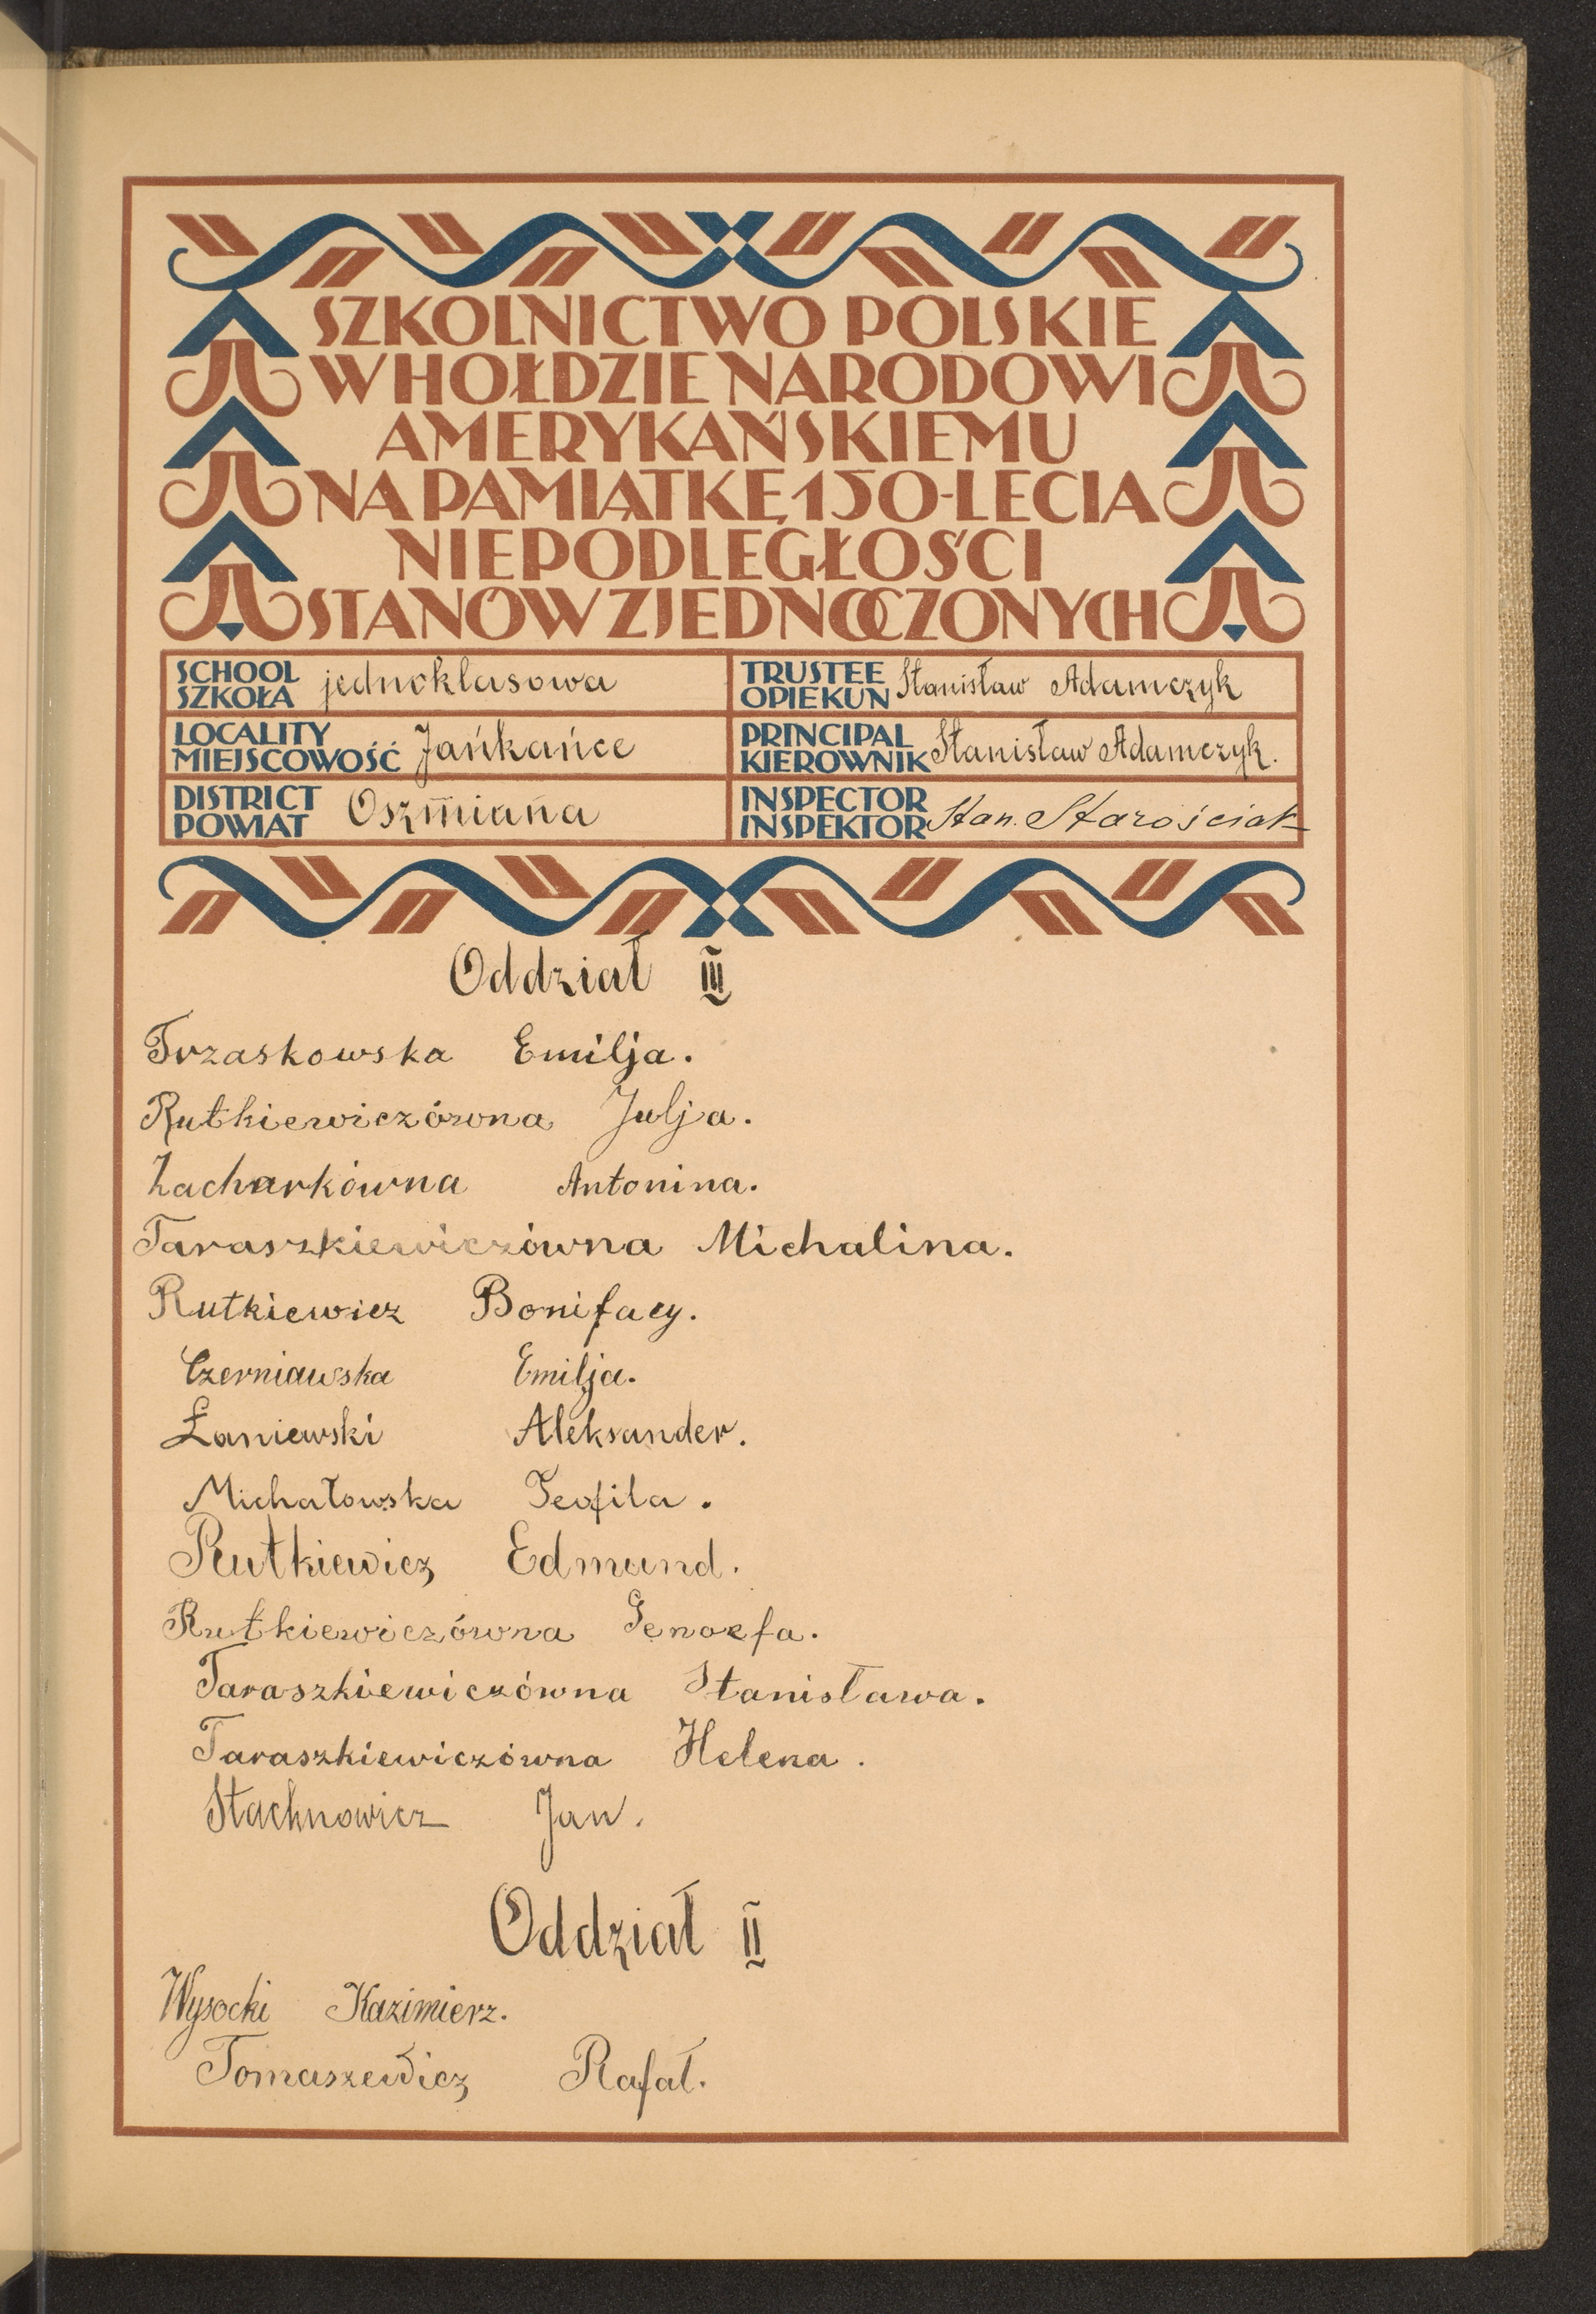 SZKOLNICTWO POLSKIE
W HOŁDZIE NARODOWI
AMERYKAŃSKIEMU
NA PAMIĄTKĘ 150-LECIA
NIEPODLEGŁOŚCI
STANÓW ZJEDNOCZONYCH
SCHOOL
SZKOŁA jednoklasowa
TRUSTEE
OPIEKUN Stanisław Adamczyk
LOCALITY
MIEJSCOWOŚĆ Jańkańce
PRINCIPAL
KIEROWNIK Stanisław Adamczyk.
DISTRICT
POWIAT Oszmiana
INSPECTOR
INSPEKTOR Stan. Starościak
Oddział III
Trzaskowska Emilja.
Rutkiewiczówna Julja.
Zacharkówna Antonina.
Taraszkiewiczówna Michalina.
Rutkiewicz Bonifacy.
Czerniawska Emilja.
Łaniewski Aleksander.
Michałowska Teofila.
Rutkiewicz Edmund.
Rutkiewiczówna Genoefa.
Taraszkiewiczówna Stanisława.
Taraszkiewiczówna Helena.
Stachnowicz Jan.
Oddział II
Wysocki Kazimierz.
Tomaszewicz Rafał.